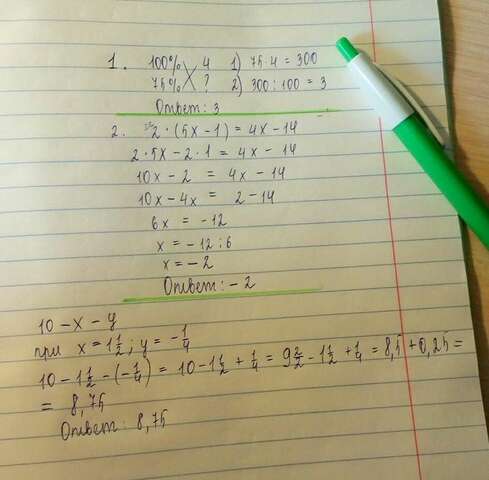 1. 100% 4 1) 75·4 = 300
75% ? 2) 300 : 100 = 3
Ответ: 3
2. 2·(5x-1) = 4x-14
2·5x-2·1 = 4x-14
10x-2 = 4x-14
10x-4x = 2-14
6x = -12
x = -12:6
x = -2
Ответ: -2
10-x-y
при x = 1 1/2; y = -1/4
10-1 1/2-(-1/4) = 10-1 1/2+1/4 = 9 2/2-1 1/2+1/4 = 8,5+0,25 =
= 8,75
Ответ: 8,75